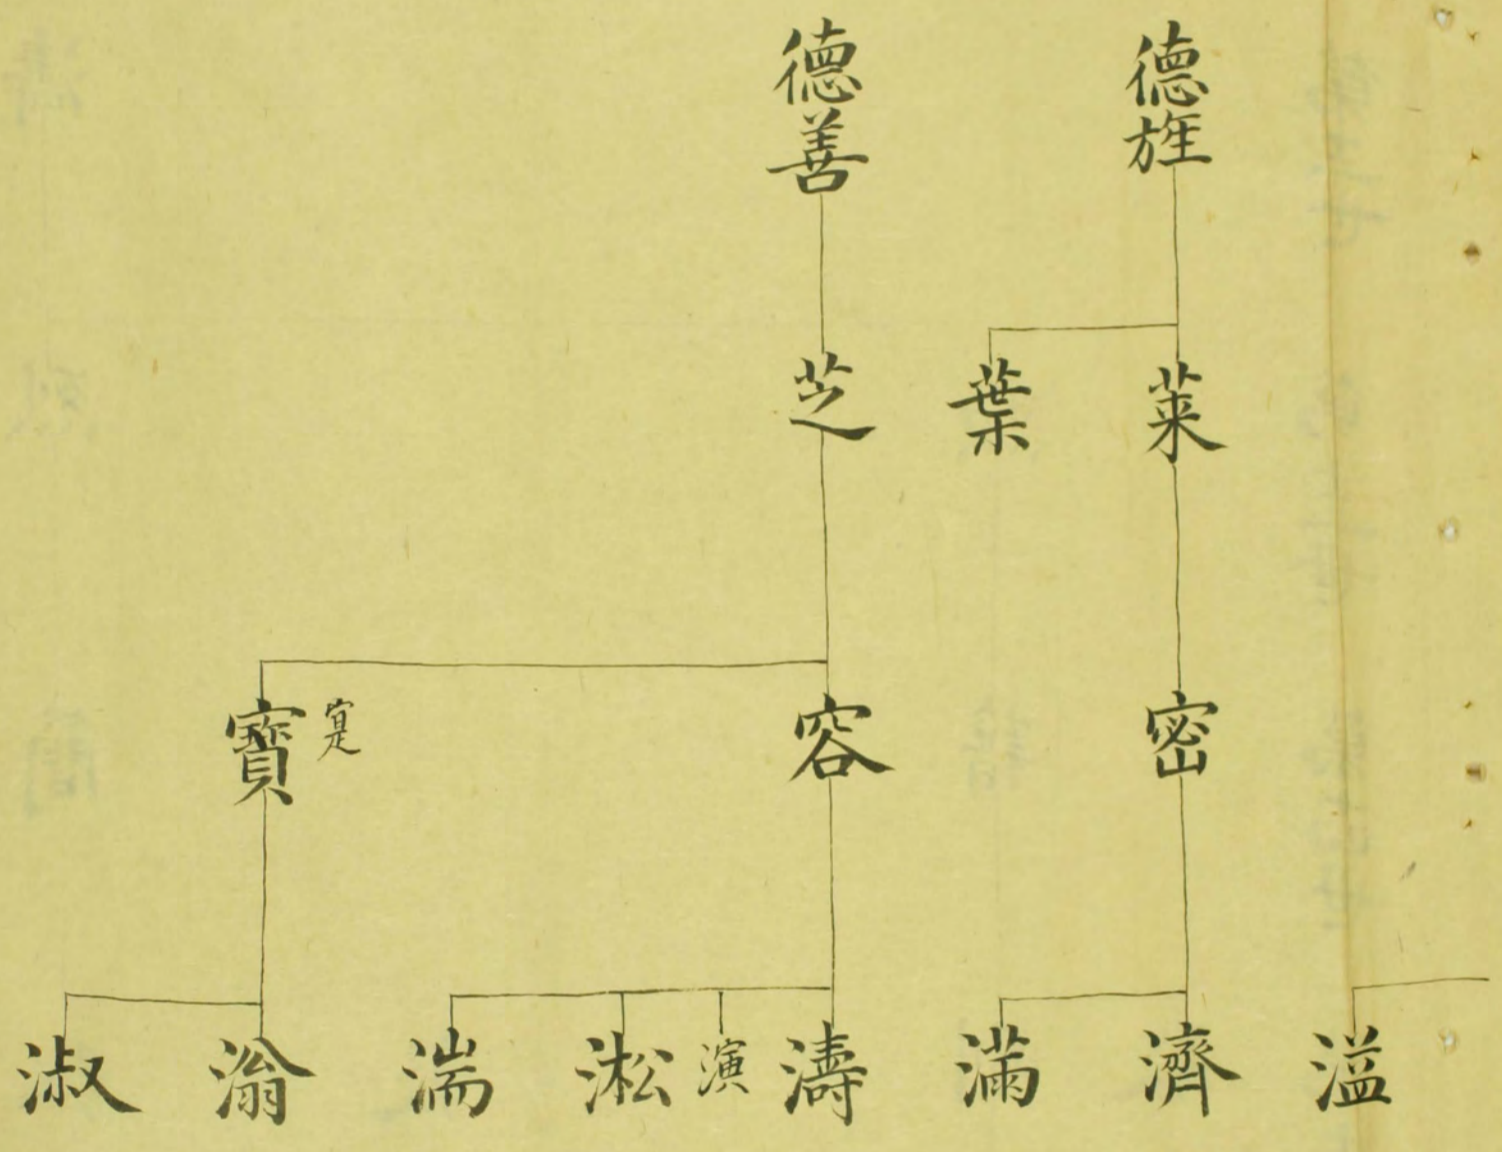 德旌
德善
萊
葉
芝
密
容
寔
寶
溢
濟
滿
濤
演
淞
湍
滃
淑